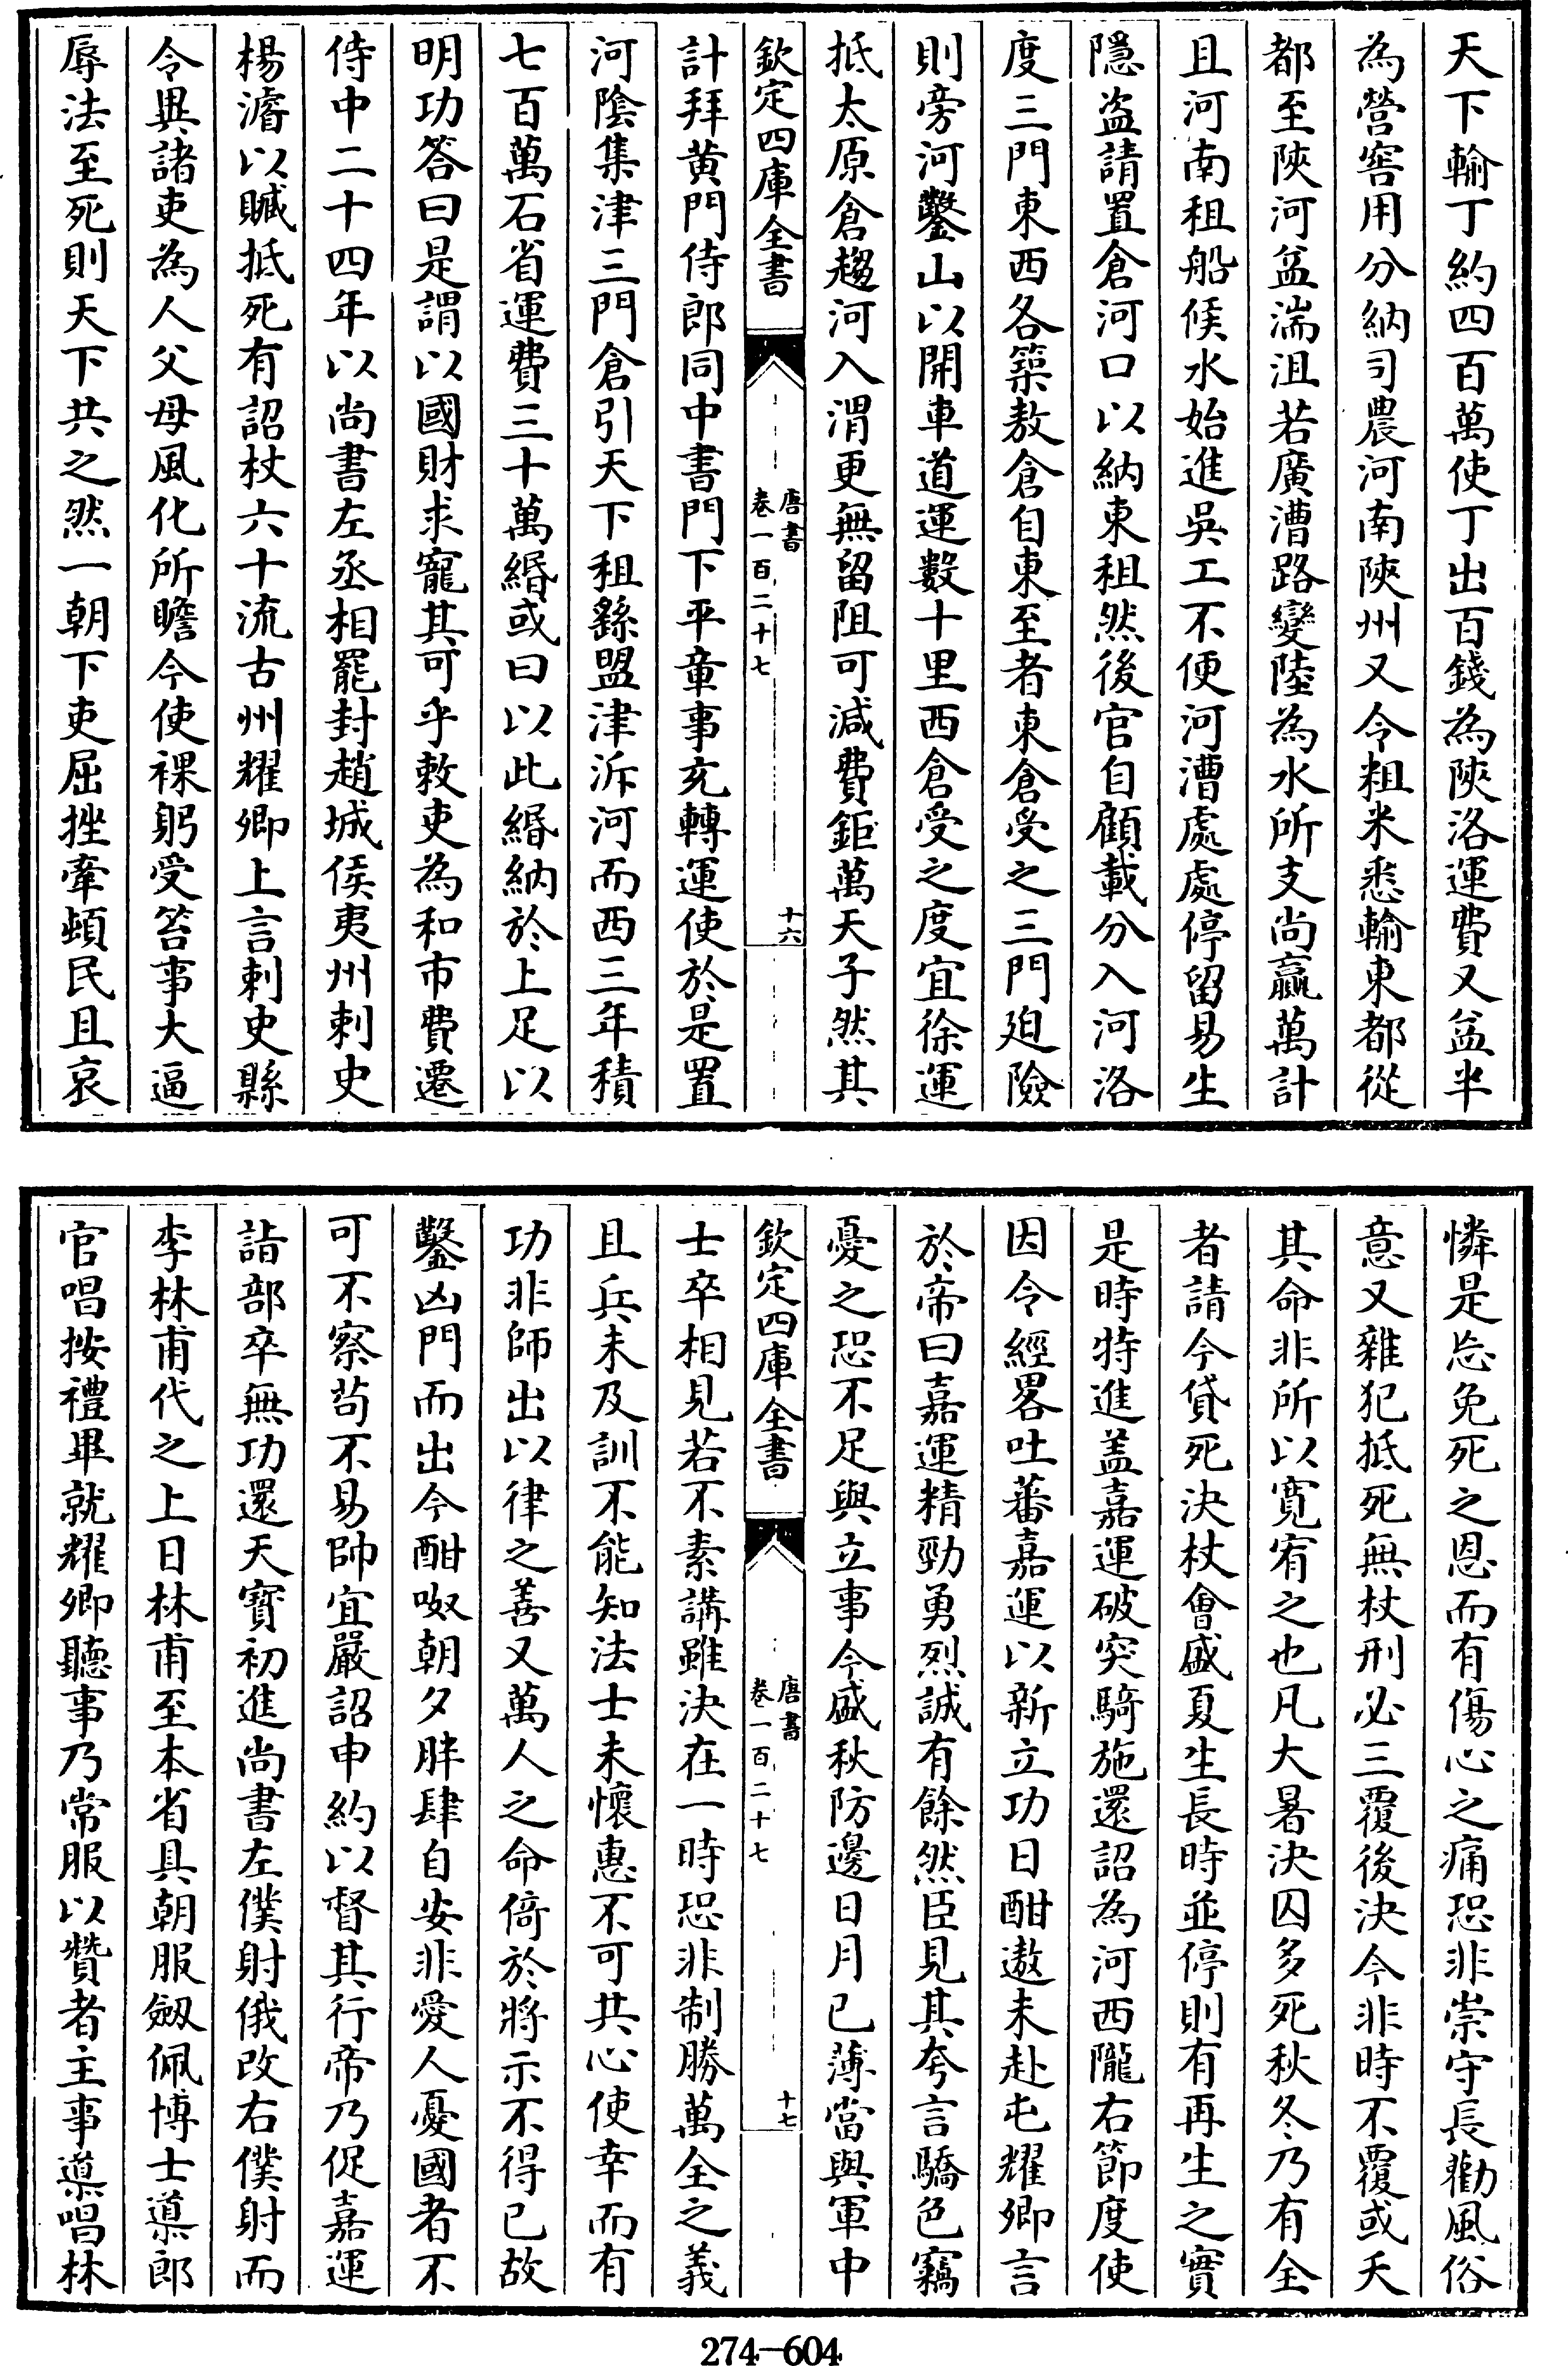 天下輸丁約四百萬使丁出百錢為陜洛運費又益半
為營窖用分納司農河南陜州又令租米悉輸東都從
都至陜河益湍沮若廣漕路變陸為水所支尚贏萬計
且河南租船候水始進吳工不便河漕處處停留易生
隱盜請置倉河口以納東租然後官自顧載分入河洛
度三門東西各築敖倉自東至者東倉受之三門迫險
則旁河鑿山以開車道運數十里西倉受之度宜徐運
抵太原倉趨河入渭更無留阻可減費鉅萬天子然其
欽定四庫全書
唐書
卷一百二十七
十六
計拜黃門侍郎同中書門下平章事充轉運使於是置
河陰集津三門倉引天下租繇盟津泝河而西三年積
七百萬石省運費三十萬緡或曰以此緡納於上足以
明功答曰是謂以國財求寵其可乎敕吏為和市費遷
侍中二十四年以尚書左丞相罷封趙城侯夷州刺史
楊濬以贓抵死有詔杖六十流古州耀卿上言刺史縣
令異諸吏為人父母風化所瞻今使裸躬受笞事大逼
辱法至死則天下共之然一朝下吏屈挫牽頓民且哀
憐是忘免死之恩而有傷心之痛恐非崇守長勸風俗
意又雜犯抵死無杖刑必三覆後決今非時不覆或夭
其命非所以寬宥之也凡大暑決囚多死秋冬乃有全
者請今貸死決杖會盛夏生長時並停則有再生之實
是時特進蓋嘉運破突騎施還詔為河西隴右節度使
因令經畧吐蕃嘉運以新立功日酣遨未赴屯耀卿言
於帝曰嘉運精勁勇烈誠有餘然臣見其夸言驕色竊
憂之恐不足與立事今盛秋防邊日月已薄當與軍中
欽定四庫全書
唐書
卷一百二十七
十七
士卒相見若不素講雖決在一時恐非制勝萬全之義
且兵未及訓不能知法士未懷惠不可共心使幸而有
功非師出以律之善又萬人之命倚於將示不得已故
鑿凶門而出今酣呶朝夕胖肆自安非愛人憂國者不
可不察苟不易帥宜嚴詔申約以督其行帝乃促嘉運
詣部卒無功還天寶初進尚書左僕射俄改右僕射而
李林甫代之上日林甫至本省具朝服劔佩博士導郎
官唱按禮畢就耀卿聽事乃常服以贊者主事導唱林
274-604